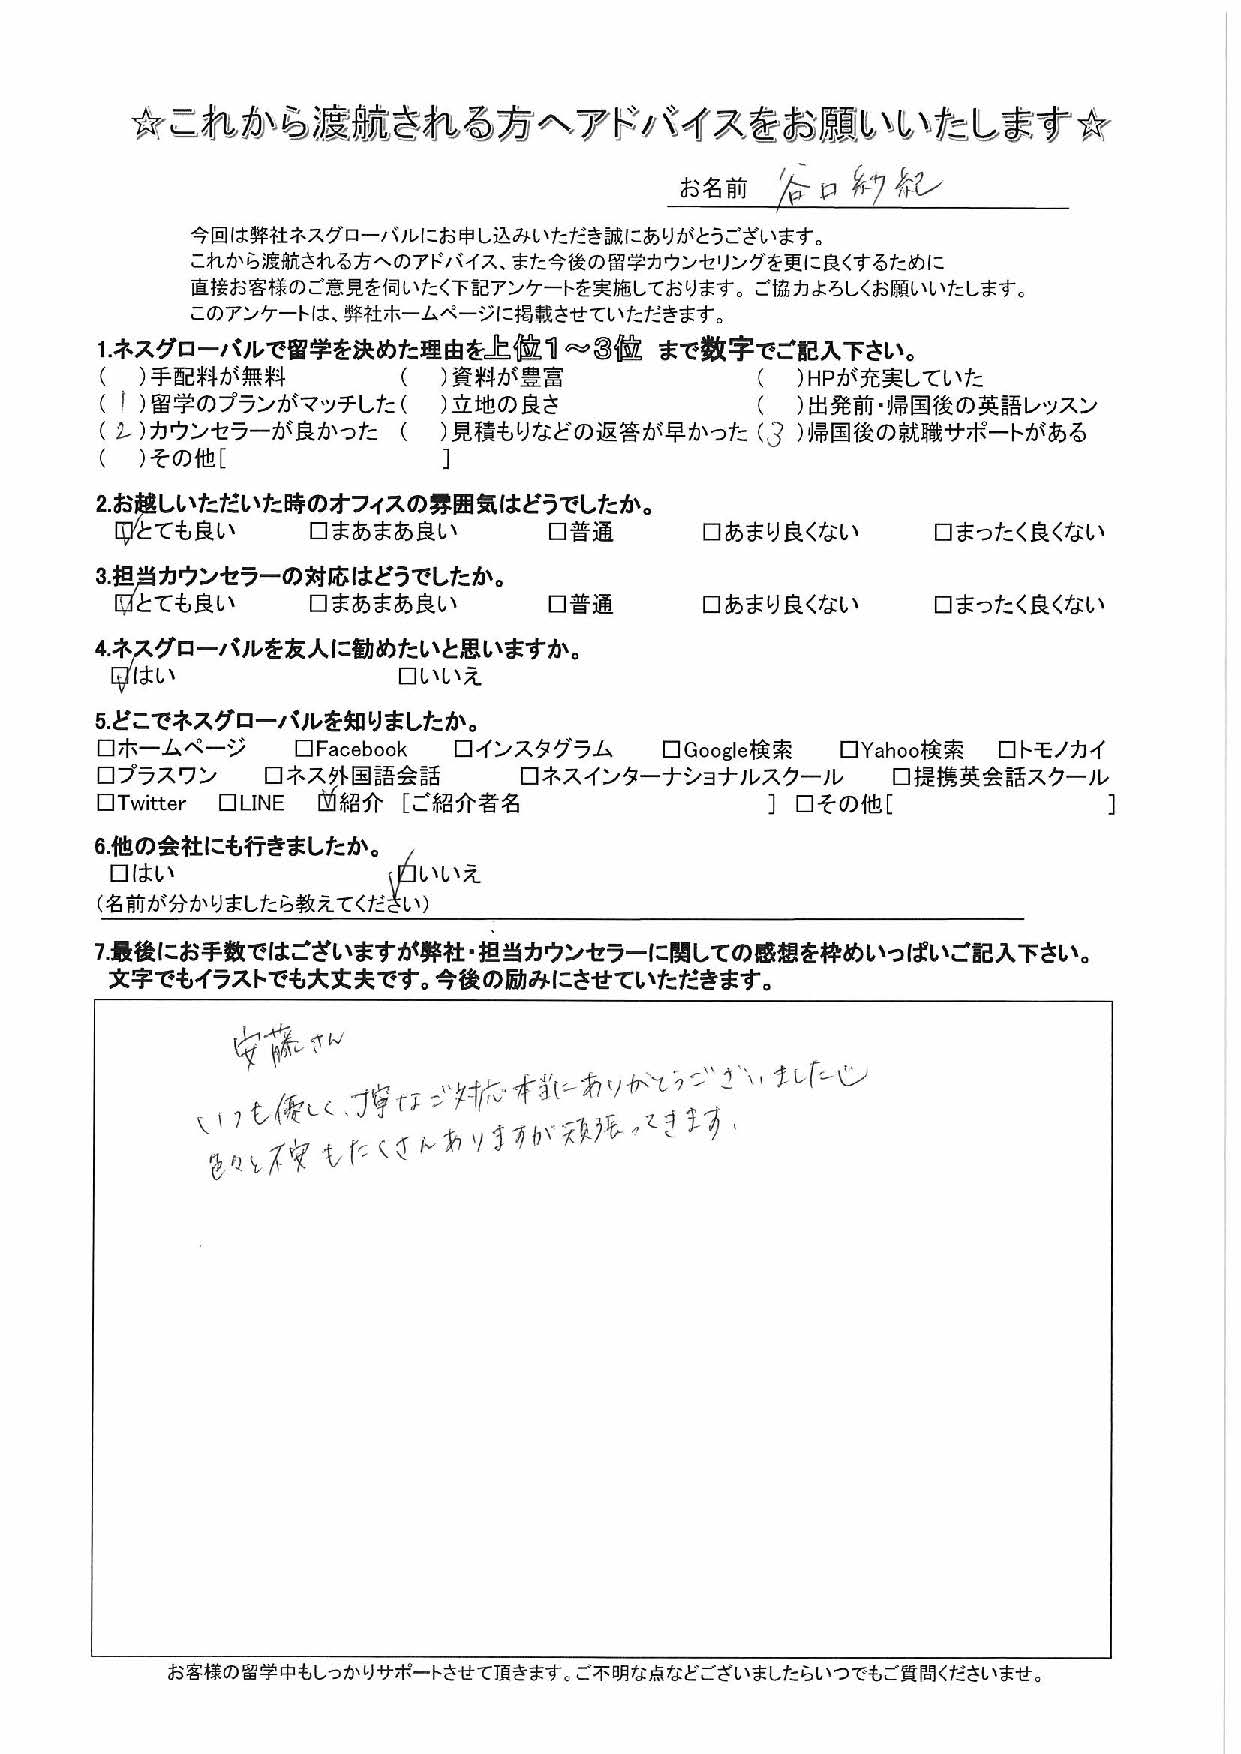 ☆これから渡航される方へアドバイスをお願いいたします☆
お名前 谷口紗紀
今回は弊社ネスグローバルにお申し込みいただき誠にありがとうございます。
これから渡航される方へのアドバイス、また今後の留学カウンセリングを更に良くするために
直接お客様のご意見を伺いたく下記アンケートを実施しております。ご協力よろしくお願いいたします。
このアンケートは、弊社ホームページに掲載させていただきます。
1.ネスグローバルで留学を決めた理由を上位1～3位 まで数字でご記入下さい。
( )手配料が無料 ( )資料が豊富 ( )HPが充実していた
( 1 )留学のプランがマッチした ( )立地の良さ ( )出発前・帰国後の英語レッスン
( 2 )カウンセラーが良かった ( )見積もりなどの返答が早かった ( 3 )帰国後の就職サポートがある
( )その他[ ]
2.お越しいただいた時のオフィスの雰囲気はどうでしたか。
☑とても良い □まあまあ良い □普通 □あまり良くない □まったく良くない
3.担当カウンセラーの対応はどうでしたか。
☑とても良い □まあまあ良い □普通 □あまり良くない □まったく良くない
4.ネスグローバルを友人に勧めたいと思いますか。
☑はい □いいえ
5.どこでネスグローバルを知りましたか。
□ホームページ □Facebook □インスタグラム □Google検索 □Yahoo検索 □トモノカイ
□プラスワン □ネス外国語会話 □ネスインターナショナルスクール □提携英会話スクール
□Twitter □LINE ☑紹介 [ご紹介者名 ] □その他[ ]
6.他の会社にも行きましたか。
□はい ☑いいえ
(名前が分かりましたら教えてください)
7.最後にお手数ではございますが弊社・担当カウンセラーに関しての感想を枠めいっぱいご記入下さい。
文字でもイラストでも大丈夫です。今後の励みにさせていただきます。
安藤さん
いつも優しく、丁寧なご対応本当にありがとうございました
色々と不安もたくさんありますが頑張ってきます。
お客様の留学中もしっかりサポートさせて頂きます。ご不明な点などございましたらいつでもご質問くださいませ。